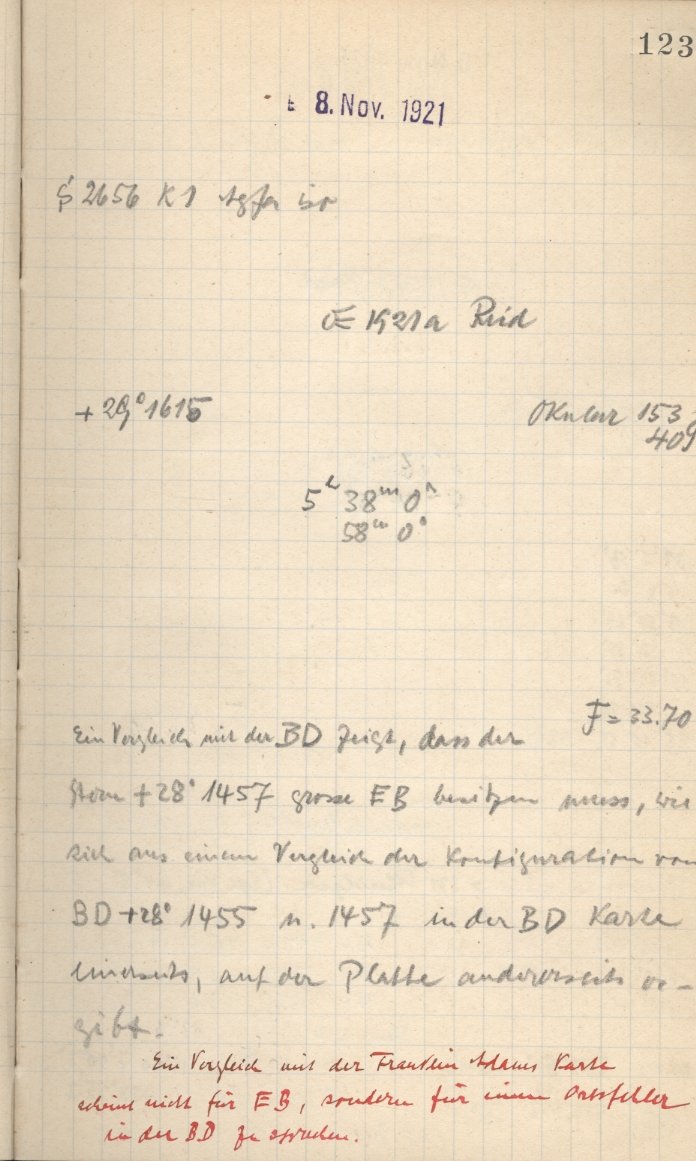 123
8. Nov. 1921
2656 K1 Agfa iso
1921a Reid
+29° 1615
Okular 153
409
5h 38m 0s
58m 0s
F = 33.70
Ein Vergleich mit der BD zeigt, dass der
Stern +28° 1457 grosse EB besitzen muss, wie
sich aus einem Vergleich der Konfiguration von
BD +28° 1455 u. 1457 in der BD Karte
einerseits, auf der Platte andererseits er-
gibt.
Ein Vergleich mit der Franklin Adams Karte
scheint nicht für EB, sondern für einen Ortsfehler
in der BD zu sprechen.